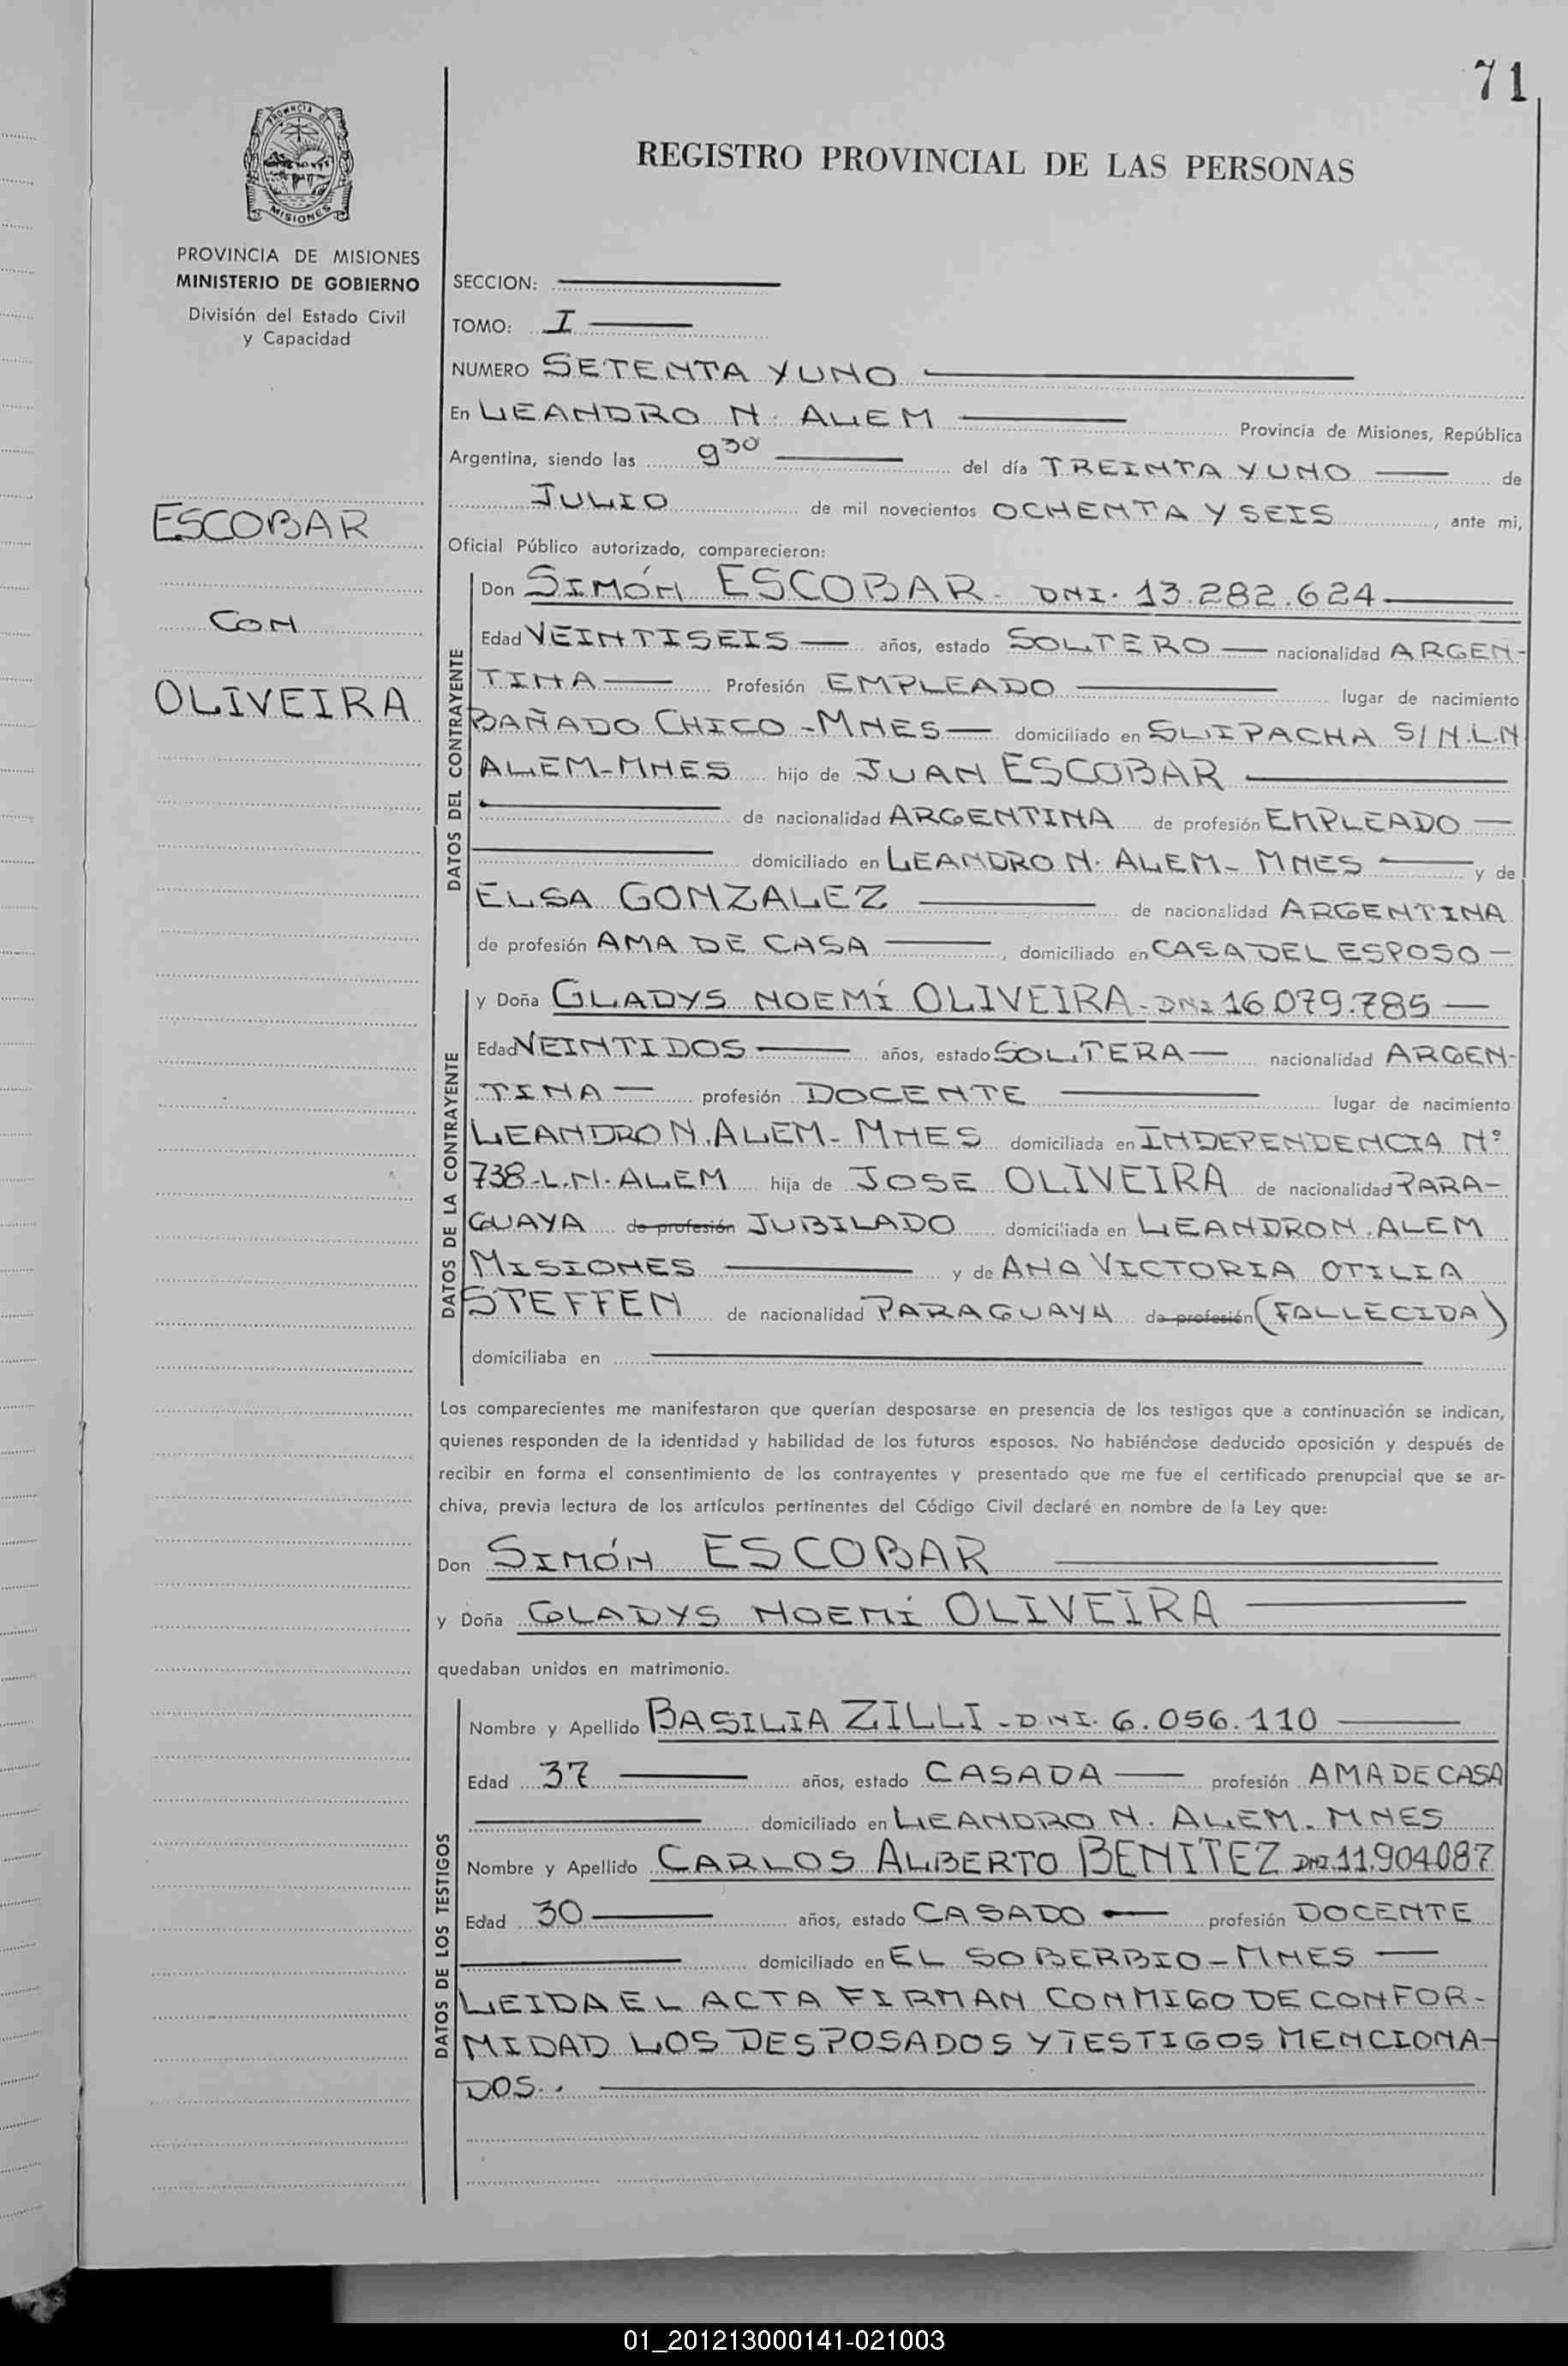 71
PROVINCIA DE
MISIONES
REGISTRO PROVINCIAL DE LAS PERSONAS
PROVINCIA DE MISIONES
MINISTERIO DE GOBIERNO
División del Estado Civil
y Capacidad
SECCION:
TOMO: I
NUMERO SETENTA Y UNO
En LEANDRO N. ALEM Provincia de Misiones, República
Argentina, siendo las 9 30 del día TREINTA Y UNO de
JULIO de mil novecientos OCHENTA Y SEIS, ante mi,
Oficial Público autorizado, comparecieron:
ESCOBAR
CON
OLIVEIRA
DATOS DEL CONTRAYENTE
Don SIMÓN ESCOBAR - DNI. 13.282.624
Edad VEINTISEIS años, estado SOLTERO nacionalidad ARGEN-
TINA Profesión EMPLEADO lugar de nacimiento
BAÑADO CHICO - MNES domiciliado en SUIPACHA S/N.L.N
ALEM-MNES hijo de JUAN ESCOBAR
de nacionalidad ARGENTINA de profesión EMPLEADO
domiciliado en LEANDRO N. ALEM - MNES y de
ELSA GONZALEZ de nacionalidad ARGENTINA
de profesión AMA DE CASA, domiciliado en CASA DEL ESPOSO
DATOS DE LA CONTRAYENTE
y Doña GLADYS NOEMÍ OLIVEIRA - DNI 16.079.785
Edad VEINTIDOS años, estado SOLTERA nacionalidad ARGEN-
TINA profesión DOCENTE lugar de nacimiento
LEANDRO N. ALEM - MNES domiciliada en INDEPENDENCIA Nº
738-L.N. ALEM hija de JOSE OLIVEIRA de nacionalidad PARA-
GUAYA de profesión JUBILADO domiciliada en LEANDRO N. ALEM
MISIONES y de ANA VICTORIA OTILIA
STEFFEN de nacionalidad PARAGUAYA de profesión (FALLECIDA)
domiciliaba en
Los comparecientes me manifestaron que querían desposarse en presencia de los testigos que a continuación se indican,
quienes responden de la identidad y habilidad de los futuros esposos. No habiéndose deducido oposición y después de
recibir en forma el consentimiento de los contrayentes y presentado que me fue el certificado prenupcial que se ar-
chiva, previa lectura de los artículos pertinentes del Código Civil declaré en nombre de la Ley que:
Don SIMÓN ESCOBAR
y Doña GLADYS NOEMÍ OLIVEIRA
quedaban unidos en matrimonio.
DATOS DE LOS TESTIGOS
Nombre y Apellido BASILIA ZILLI - D.N.I. 6.056.110
Edad 37 años, estado CASADA profesión AMA DE CASA
domiciliado en LEANDRO N. ALEM - MNES
Nombre y Apellido CARLOS ALBERTO BENITEZ DNI. 11.904.087
Edad 30 años, estado CASADO profesión DOCENTE
domiciliado en EL SOBERBIO - MNES
LEIDA EL ACTA FIRMAN CONMIGO DE CONFOR-
MIDAD LOS DESPOSADOS Y TESTIGOS MENCIONA-
DOS.
01_201213000141-021003